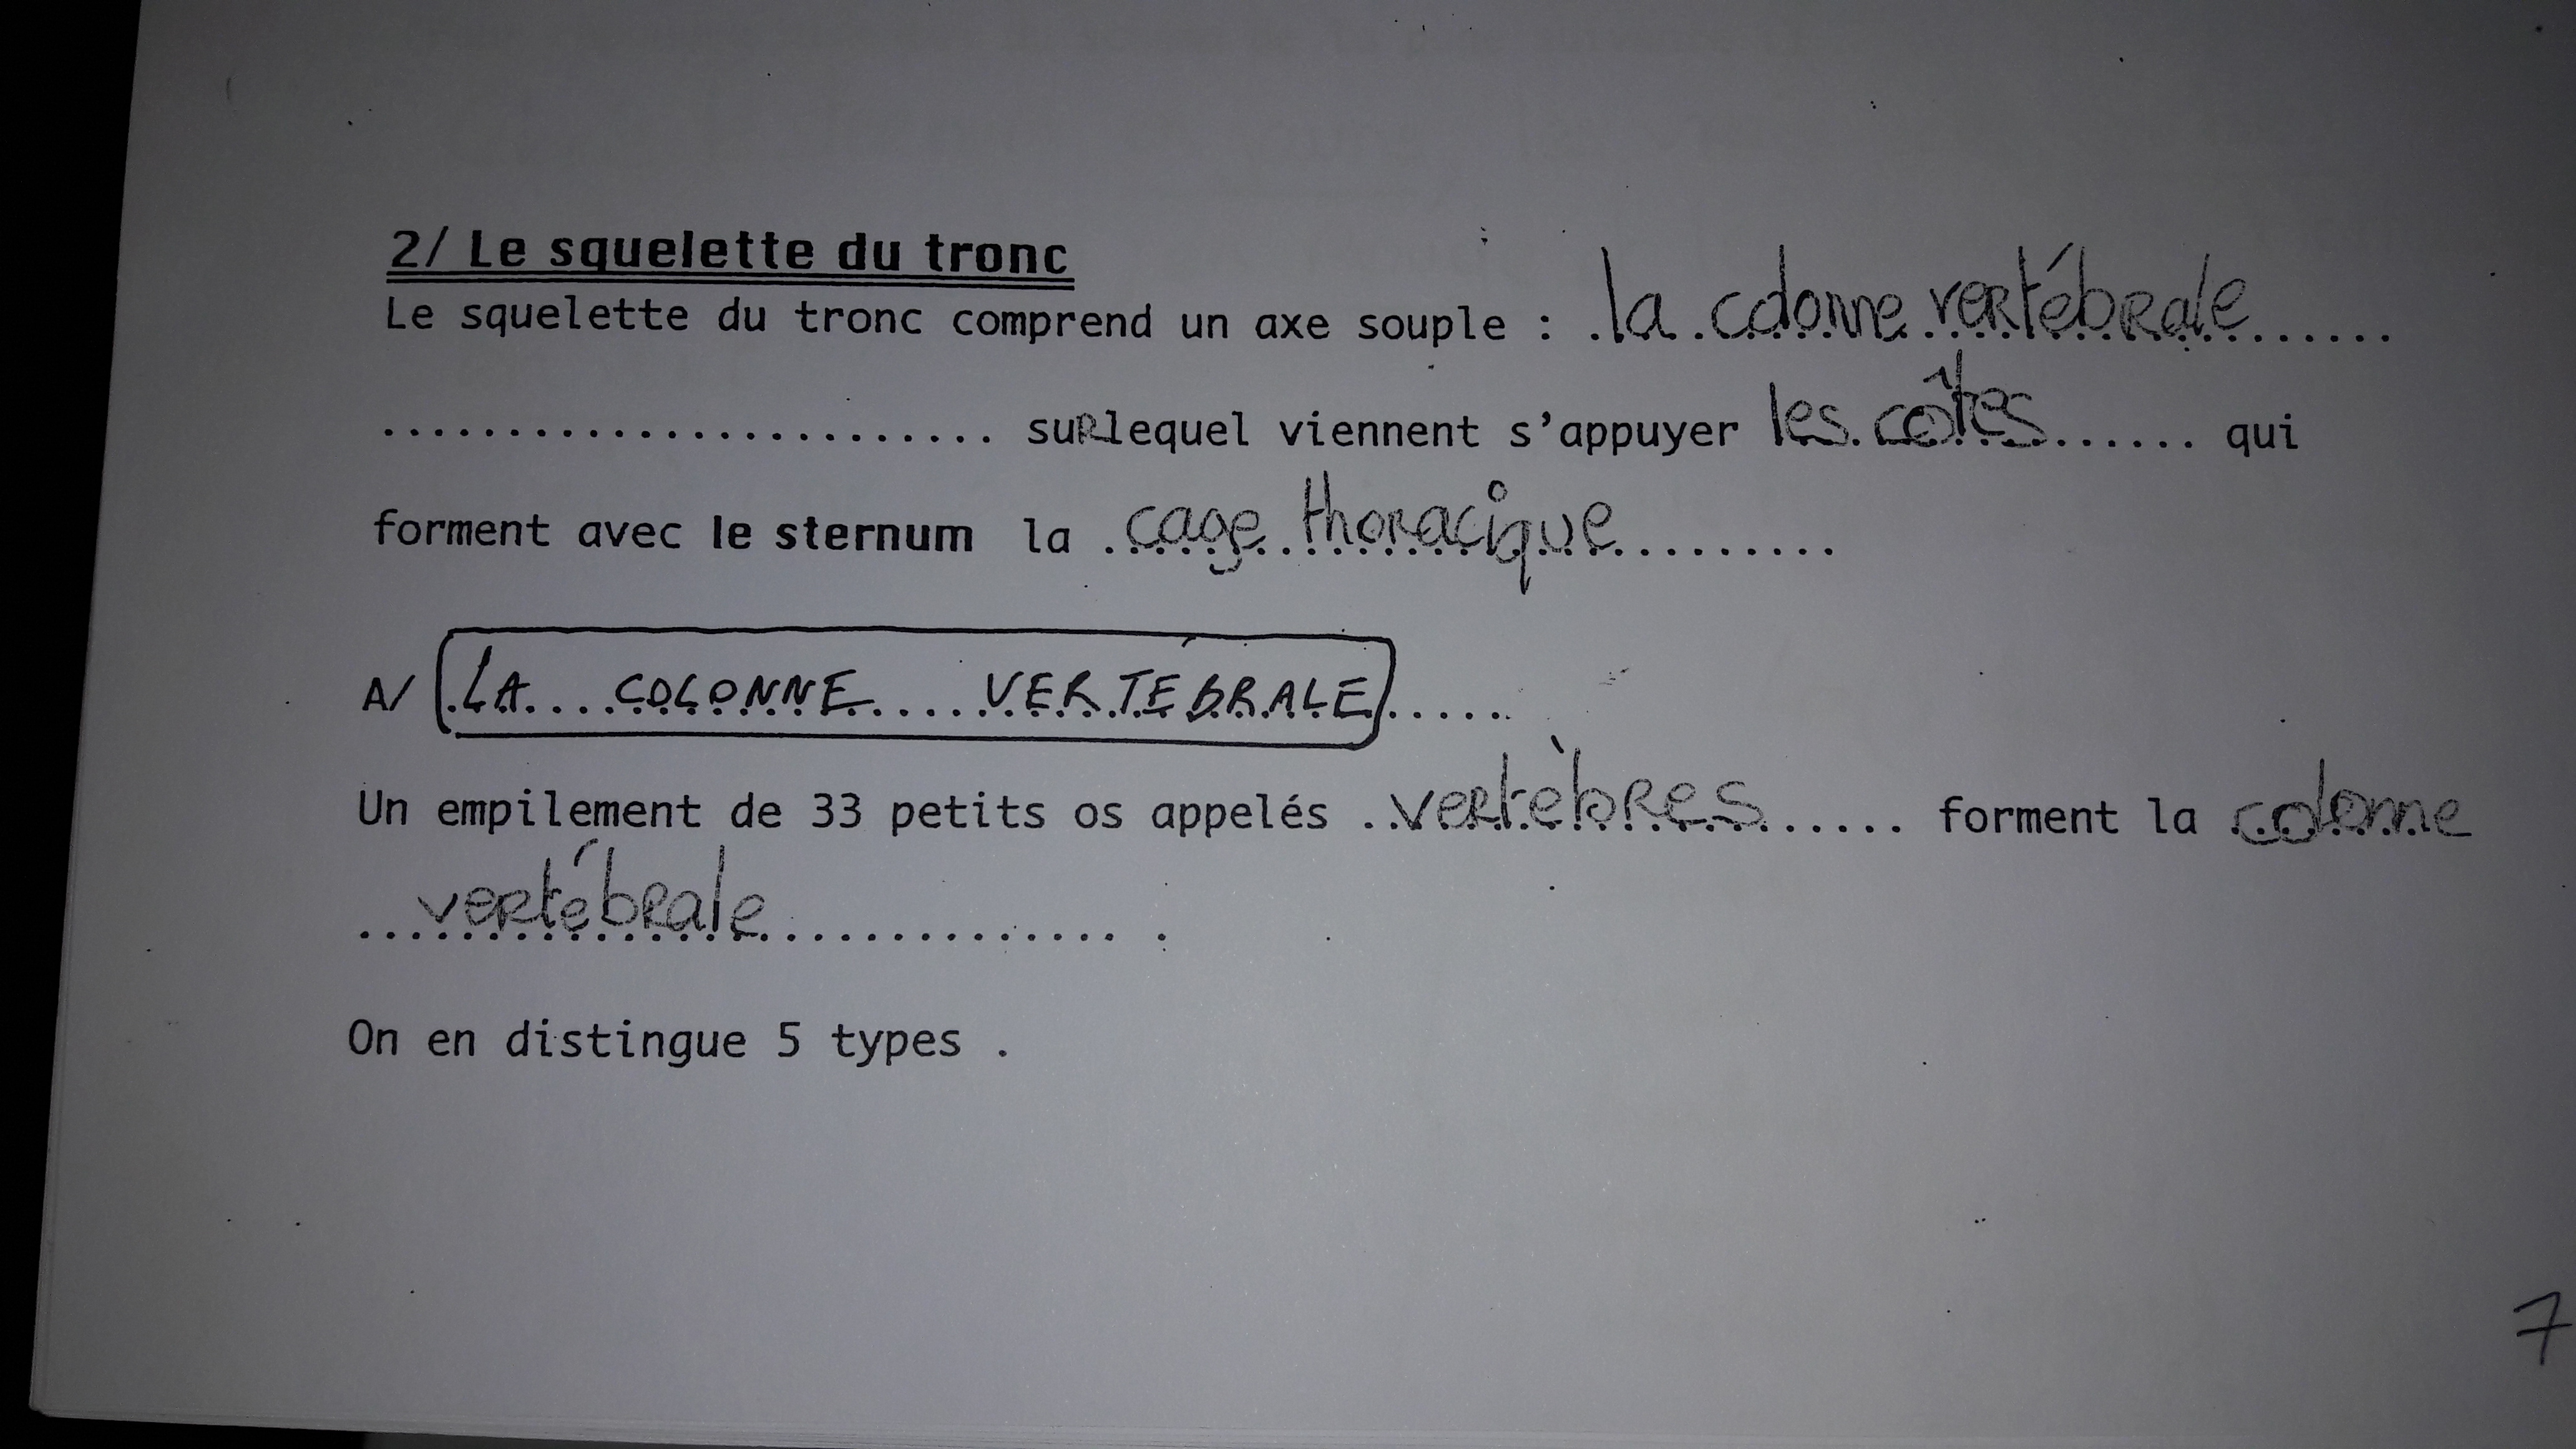 2/ Le squelette du tronc
Le squelette du tronc comprend un axe souple : .la.colonne.vertébrale......
........................... surlequel viennent s'appuyer les.côtes...... qui
forment avec le sternum la .cage.thoracique.........
A/ .LA...COLONNE....VERTÉBRALE.....
Un empilement de 33 petits os appelés ..vertèbres..... forment la .colonne
...vertébrale................ .
On en distingue 5 types .
7